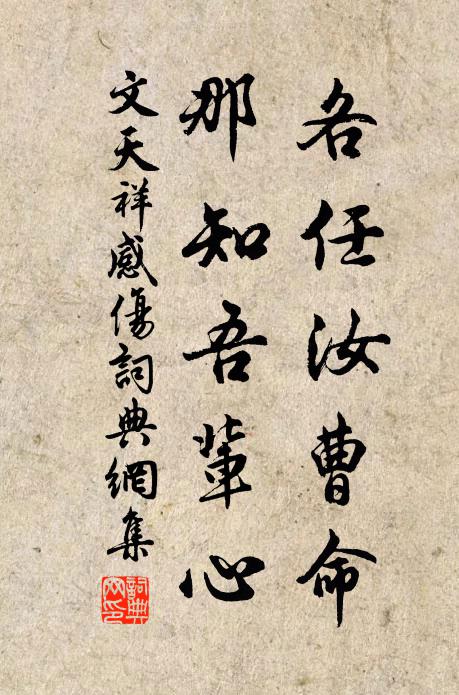 各任汝曹命
那知吾輩心
文天祥感傷詞典網集
詞典
网印